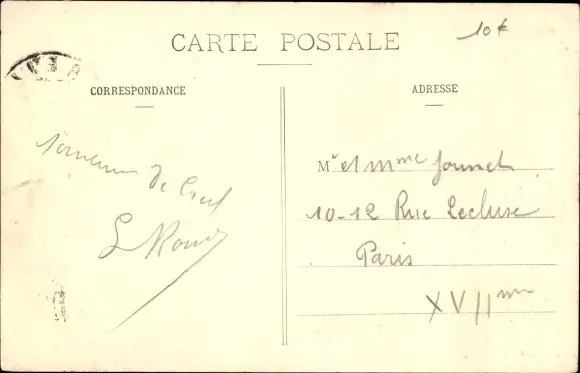 CARTE POSTALE
10€
CORRESPONDANCE
ADRESSE
Souvenir
de Creil
L
Mr et Mme Journet
10-12 Rue Lecluse
Paris
XVIIme